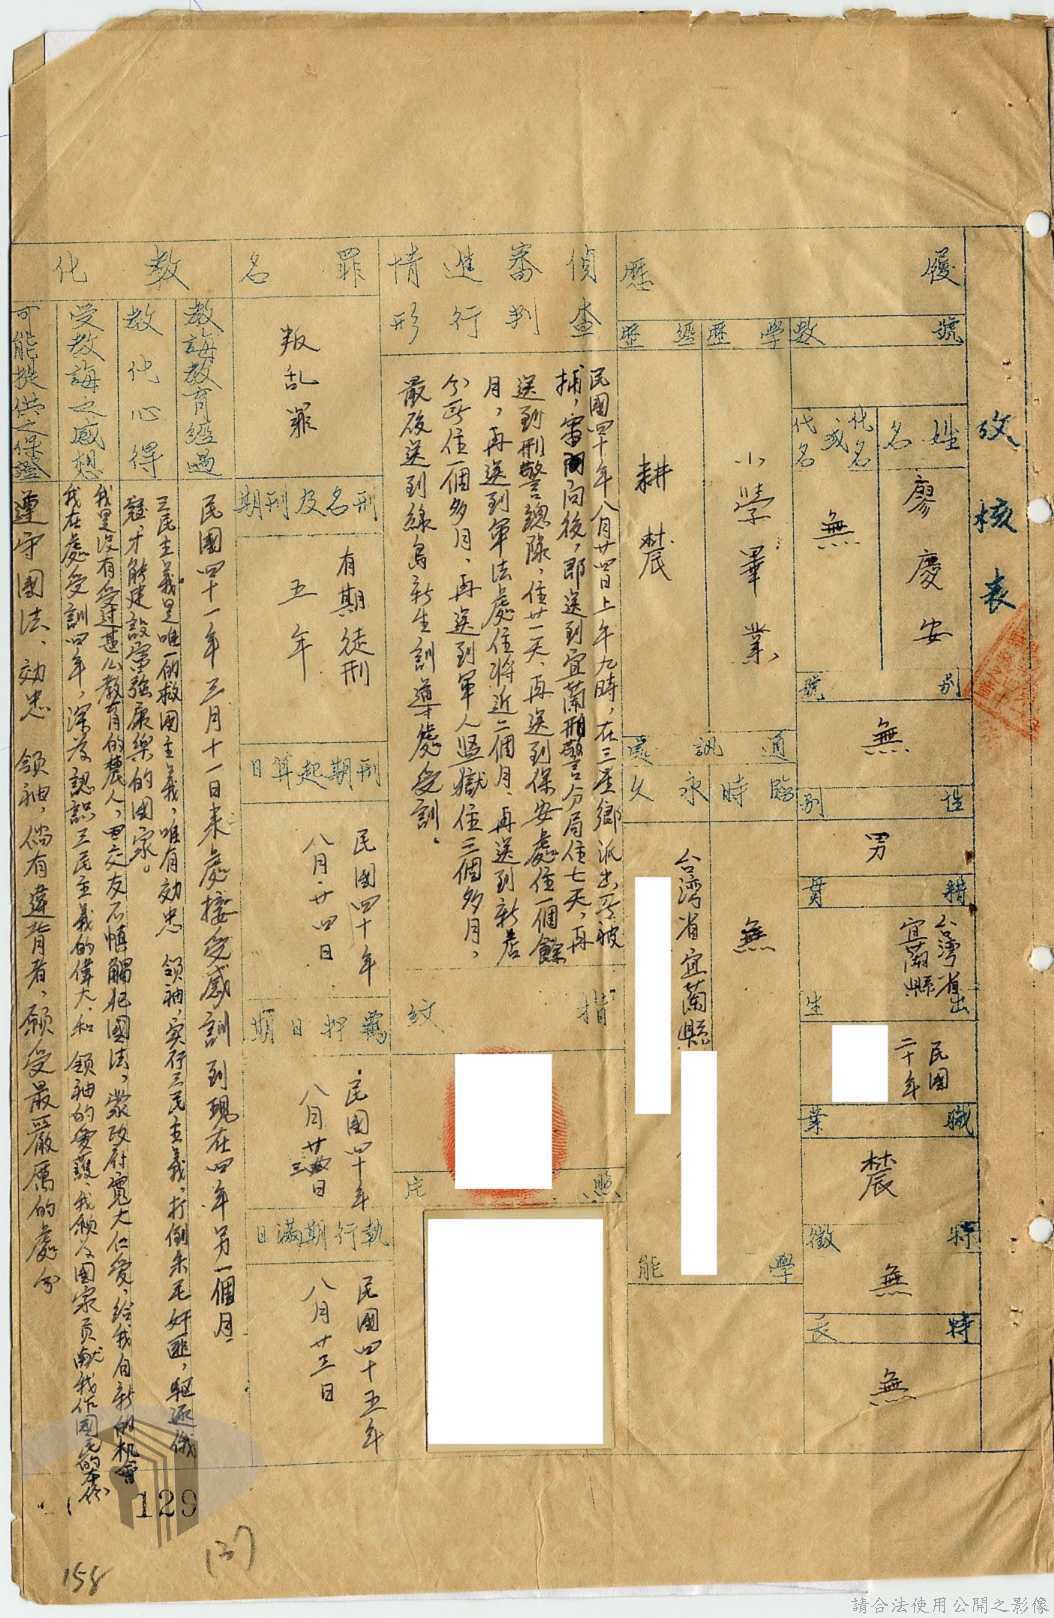 攷核表
履歷
號數
姓名
廖慶安
化名或代名
無
別號
無
性別
男
籍貫
台灣省
宜蘭縣
出生
民國
二十年
職業
農
特徵
無
特長
無
學歷
小學畢業
經歷
耕農
通訊處
臨時
無
永久
台灣省宜蘭縣
學能
偵查審判進行情形
民國四十年八月廿四日上午九時，在三星鄉派出所被
捕，審問後，即送到宜蘭刑警分局住七天，再
送到刑警總隊，住廿一天，再送到保安處住一個餘
月，再送到軍法處住將近二個月，再送到新店
分所住一個多月，再送到軍人監獄住三個多月，
最後送到綠島新生訓導處受訓。
指紋
照片
罪名
叛乱罪
刑名及刑期
有期徒刑
五年
刑期起算日
民國四十年
八月廿四日
羈押日期
民國四十年
八月廿三日
執行期滿日
民國四十五年
八月廿三日
教化
教誨教育經過
民國四十一年三月十一日來處接受感訓到現在四年另一個月
教化心得
三民主義是唯一的救國主義，唯有効忠　領袖，实行三民主義，打倒朱毛奸匪，驅逐俄
寇，才能建設富強康樂的國家。
受教誨之感想
我是沒有受過甚么教育的農人，因交友不慎觸犯國法，蒙政府寬大仁愛，給我自新的机會
我在處受訓四年，深為認識三民主義的偉大，和　領袖的愛護，我願为國家貢献我作國民的本份
可能提供之保證
遵守國法、効忠　領袖，倘有違背者，願受最嚴厲的處分
129
158
請合法使用公開之影像